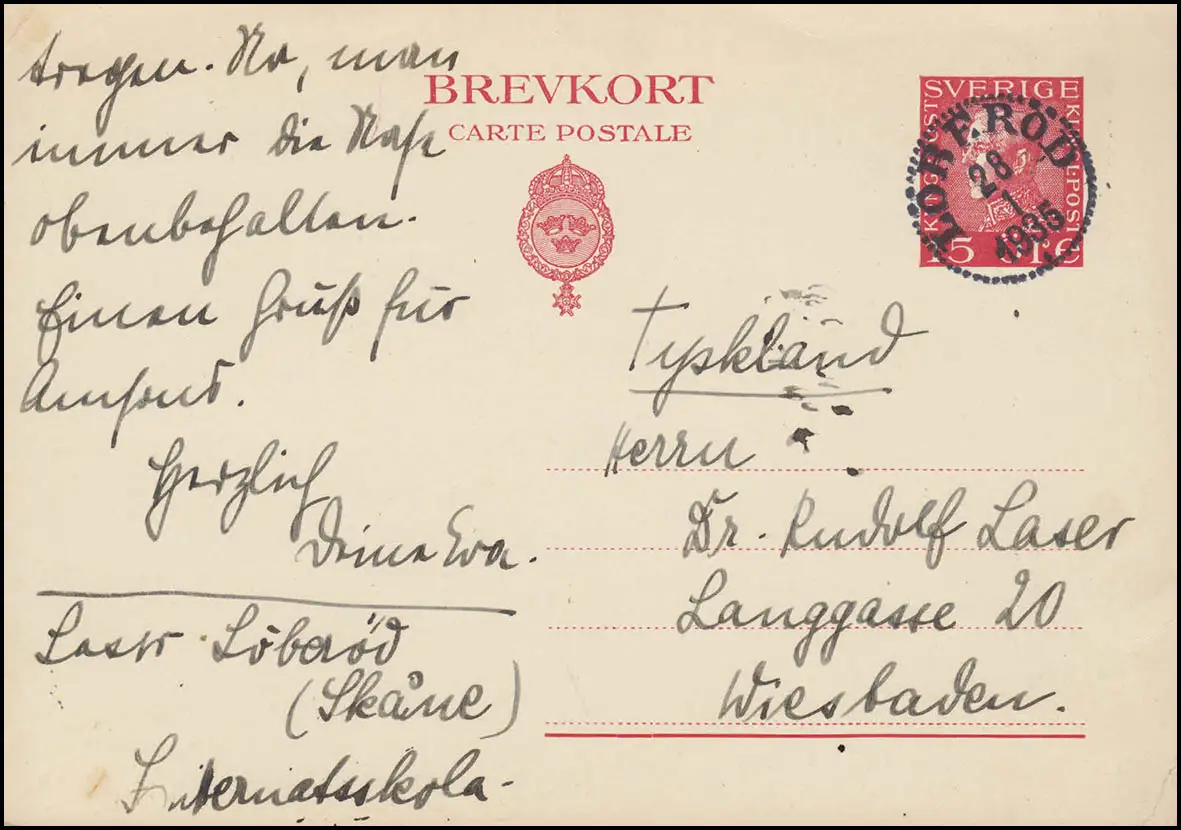 tragen. Na, man
immer die Nase
obenbehalten.
Einen Gruß für
Herzlich
Deine Eva.
Laser Löberöd
(Skåne)
Internatsskola-
BREVKORT
CARTE POSTALE
SVERIGE
15 ÖRE
LÖBERÖD
28
1
1935
Tyskland
Herrn
Dr. Rudolf Laser
Langgasse 20
Wiesbaden.